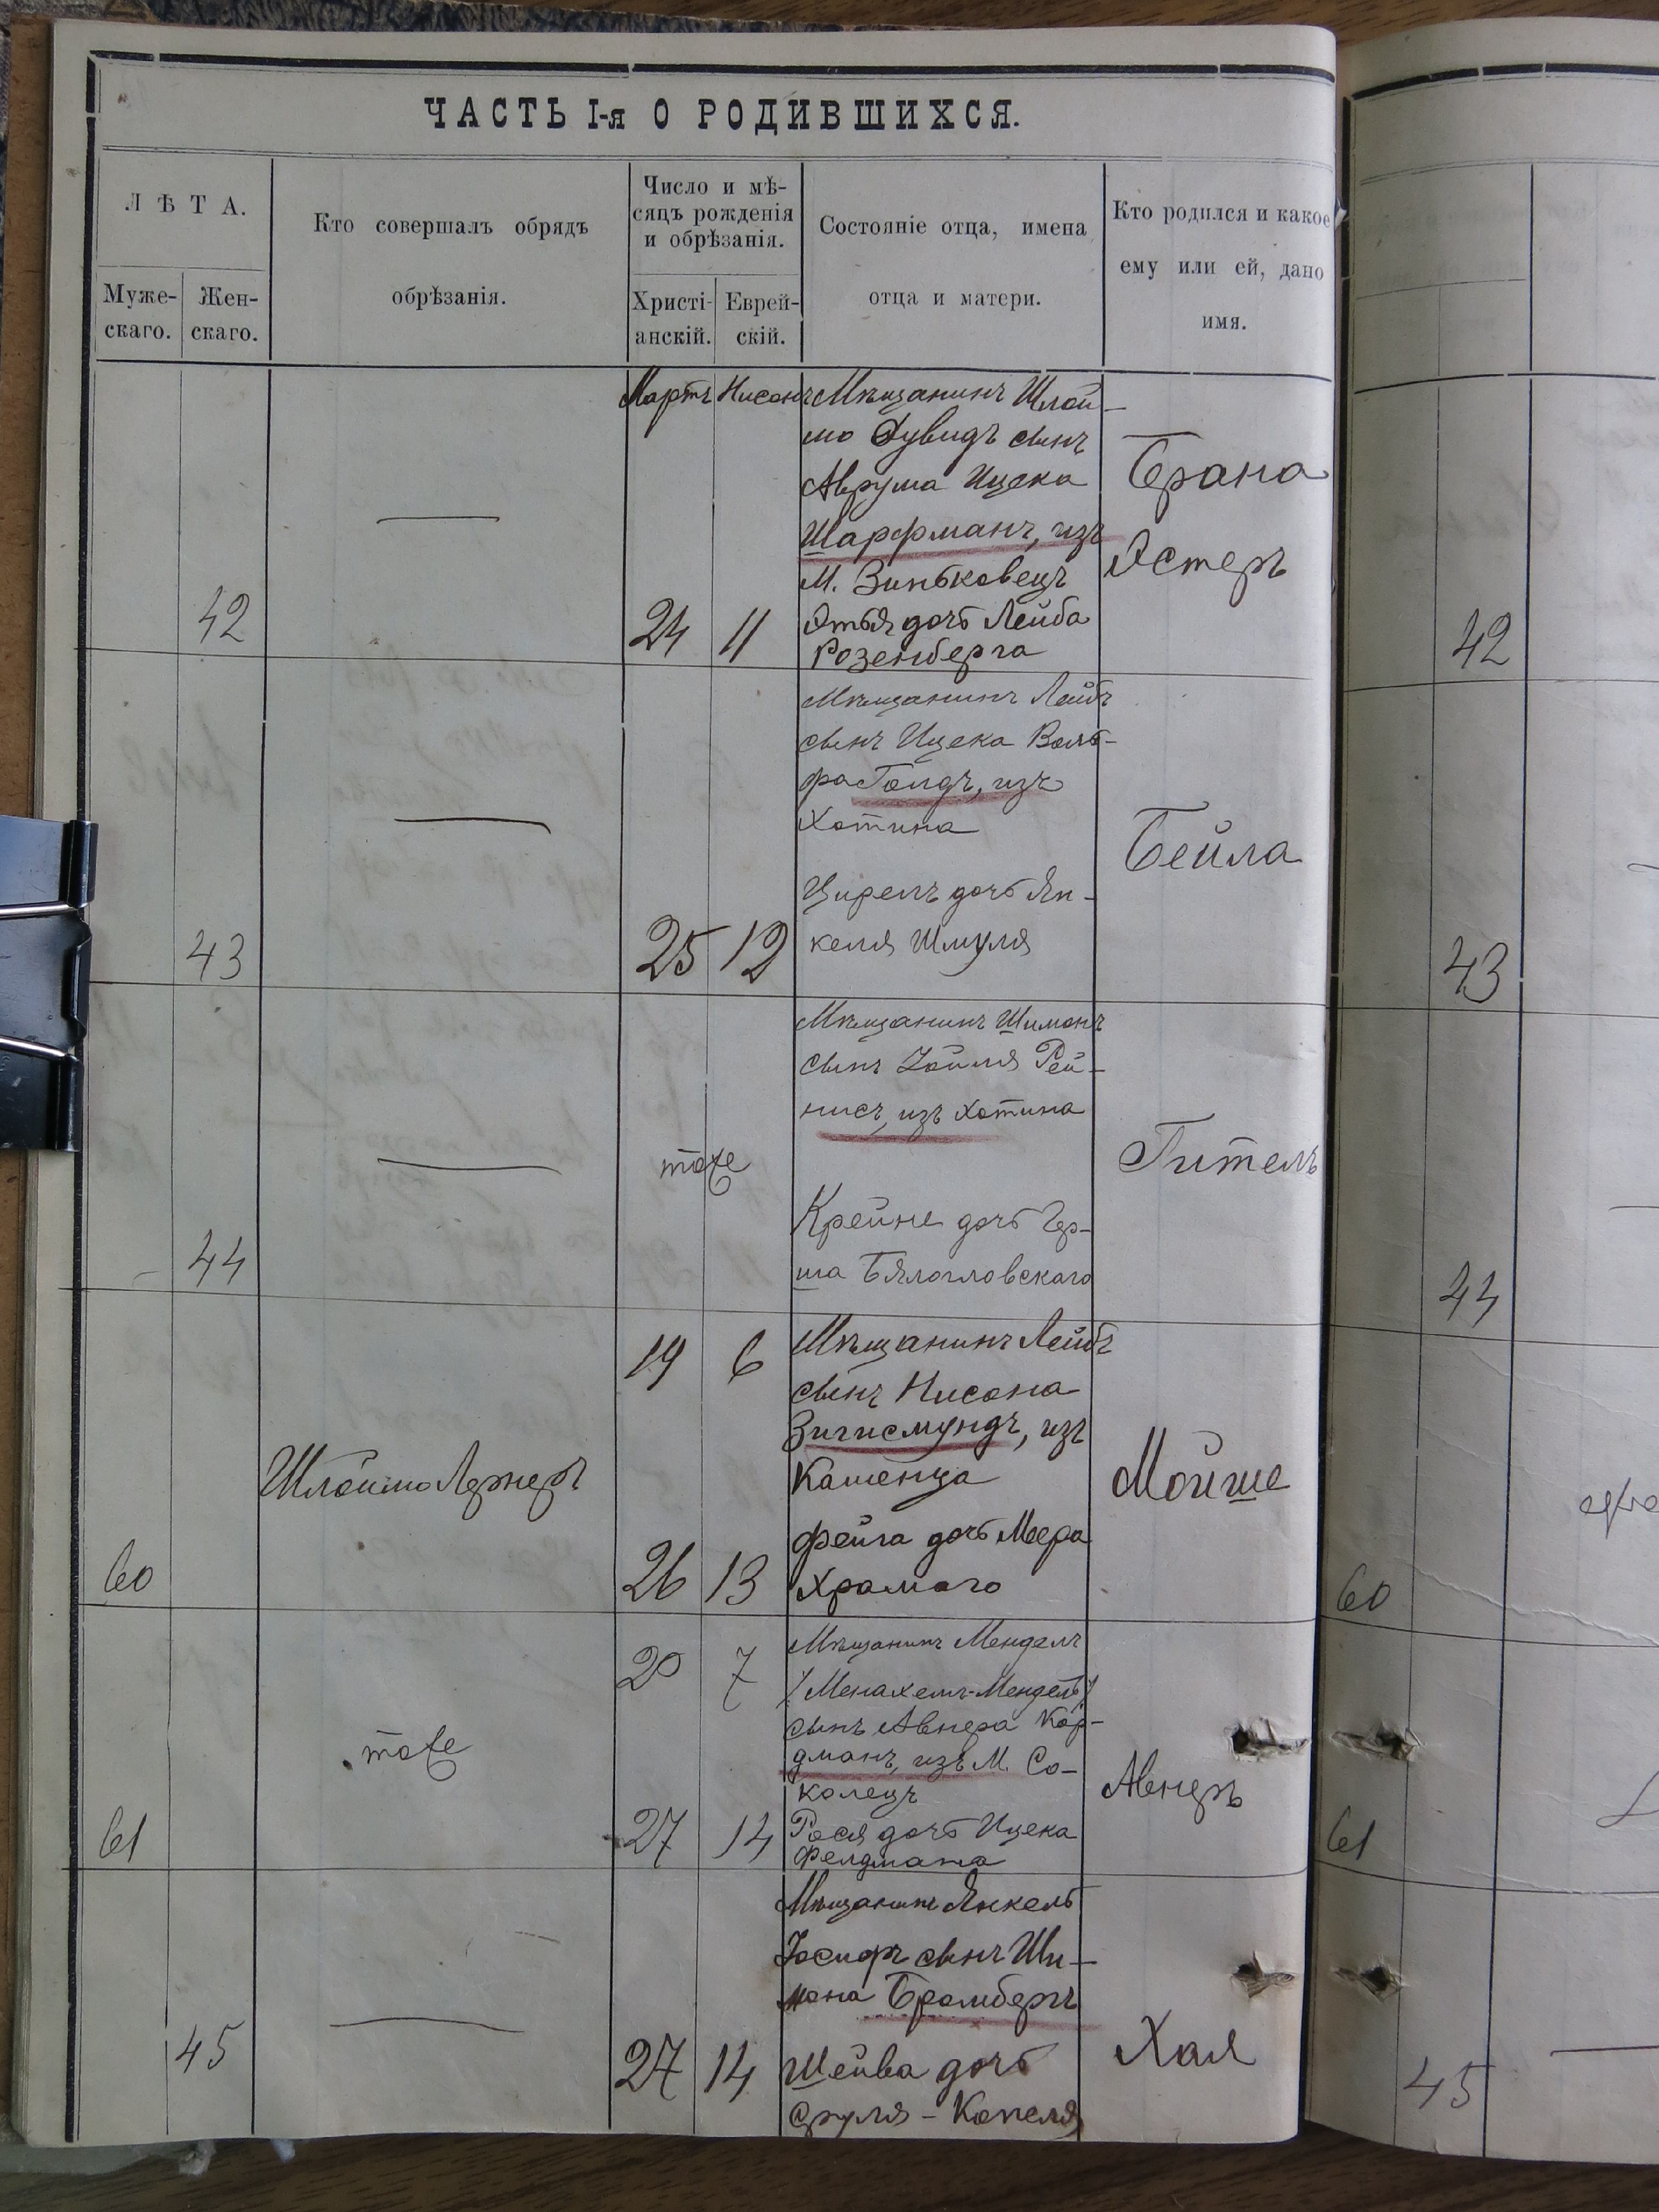 ЧАСТЬ I-я О РОДИВШИХСЯ.
ЛѢТА.
Муже-
скаго.
Жен-
скаго.
Кто совершалъ обрядъ
обрѣзанія.
Число и мѣ-
сяцъ рожденія
и обрѣзанія.
Христі-
анскій.
Еврей-
скій.
Состояніе отца, имена
отца и матери.
Кто родился и какое
ему или ей, дано
имя.
42
—
Мартъ Нисонъ
24 11
Мѣщанинъ Шлой-
мо Дувидъ сынъ
Аврума Ицека
Шарфманъ, изъ
М. Зиньковецъ
Этья дочь Лейба
Розенберга
Брана
Эстеръ
42
43
—
25 12
Мѣщанинъ Лейбъ
сынъ Ицека Воль-
фа Гойдъ, изъ
Хотина
Цирелъ дочь Ян-
келя Шмуля
Бейла
43
44
—
тоже
Мѣщанинъ Шимонъ
сынъ Зойля Рей-
нисъ, изъ Хотина
Крейне дочь Гер-
ша Бялогловскаго
Гителъ
44
60
Шлоймо Лернеръ
19 6
26 13
Мѣщанинъ Лейбъ
сынъ Нисона
Зигисмундъ, изъ
Каменца
Фейга дочь Меера
Храмого
Мойше
60
61
тоже
20 7
27 14
Мѣщанинъ Менделъ
/Менахемъ-Мендель/
сынъ Авнера Кор-
дманъ, изъ М. Со-
колецъ
Рося дочь Ицека
Фелдмана
Авнеръ
61
45
—
27 14
Мѣщанинъ Янкель
Іосифъ сынъ Ши-
мона Бромбергъ
Шейва дочь
Сруля-Копеля
Хая
45